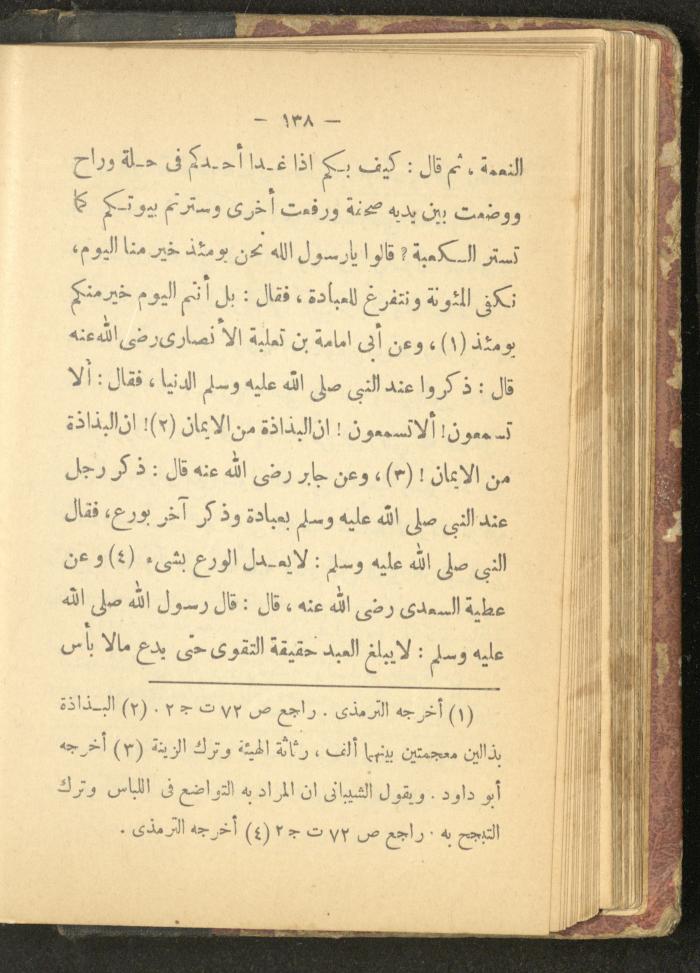 — ١٣٨ —
النعمة ، ثم قال : كيف بكم اذا غدا أحدكم فى حلة وراح
ووضعت بين يديه صحنة ورفعت أخرى وسترتم بيوتكم كما
تستر الكعبة ? قالوا يارسول الله نحن يومئذ خير منا اليوم،
نكفى المئونة ونتفرغ للعبادة ، فقال : بل أنتم اليوم خير منكم
يومئذ (١) ، وعن أبى امامة بن تعلبة الأنصارى رضى الله عنه
قال : ذكروا عند النبى صلى الله عليه وسلم الدنيا ، فقال : ألا
تسمعون! ألا تسمعون ! ان البذاذة من الايمان (٢)! ان البذاذة
من الايمان ! (٣) ، وعن جابر رضى الله عنه قال : ذكر رجل
عند النبى صلى الله عليه وسلم بعبادة وذكر آخر بورع، فقال
النبى صلى الله عليه وسلم : لايعدل الورع بشىء (٤) وعن
عطية السعدى رضى الله عنه ، قال : قال رسول الله صلى الله
عليه وسلم : لايبلغ العبد حقيقة التقوى حتى يدع مالا بأس
(١) أخرجه الترمذى . راجع ص ٧٢ ت ج ٢ . (٢) البذاذة
بذالين معجمتين بينهما ألف ، رثاثة الهيئة وترك الزينة (٣) أخرجه
أبو داود . ويقول الشيبانى ان المراد به التواضع فى اللباس وترك
التبجح به . راجع ص ٧٢ ت ج ٢ (٤) أخرجه الترمذى .